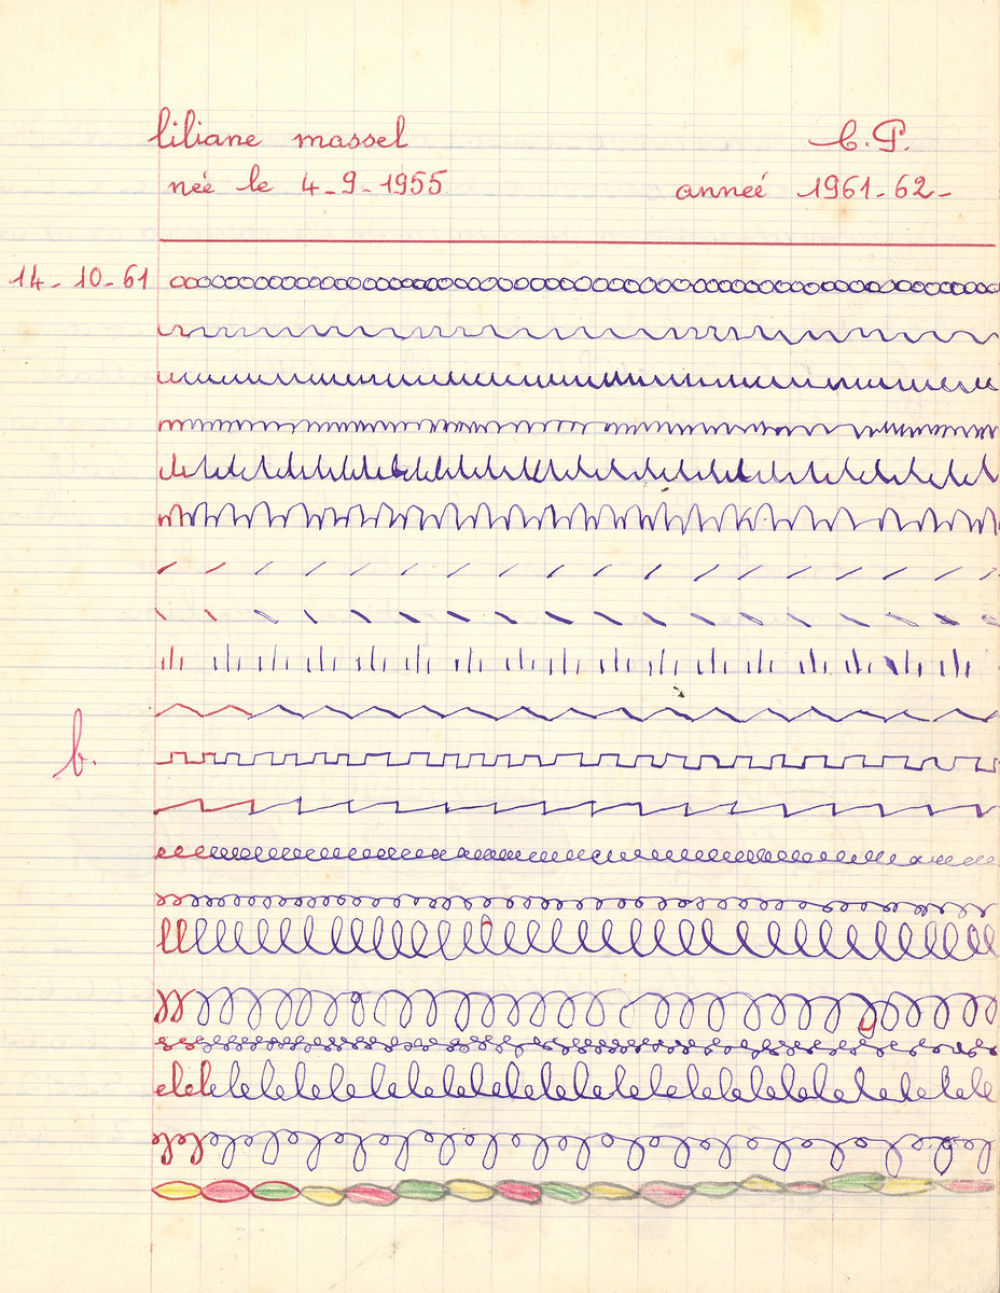 liliane massel C.P.
née le 4-9-1955 année 1961-62-
14-10-61
b.